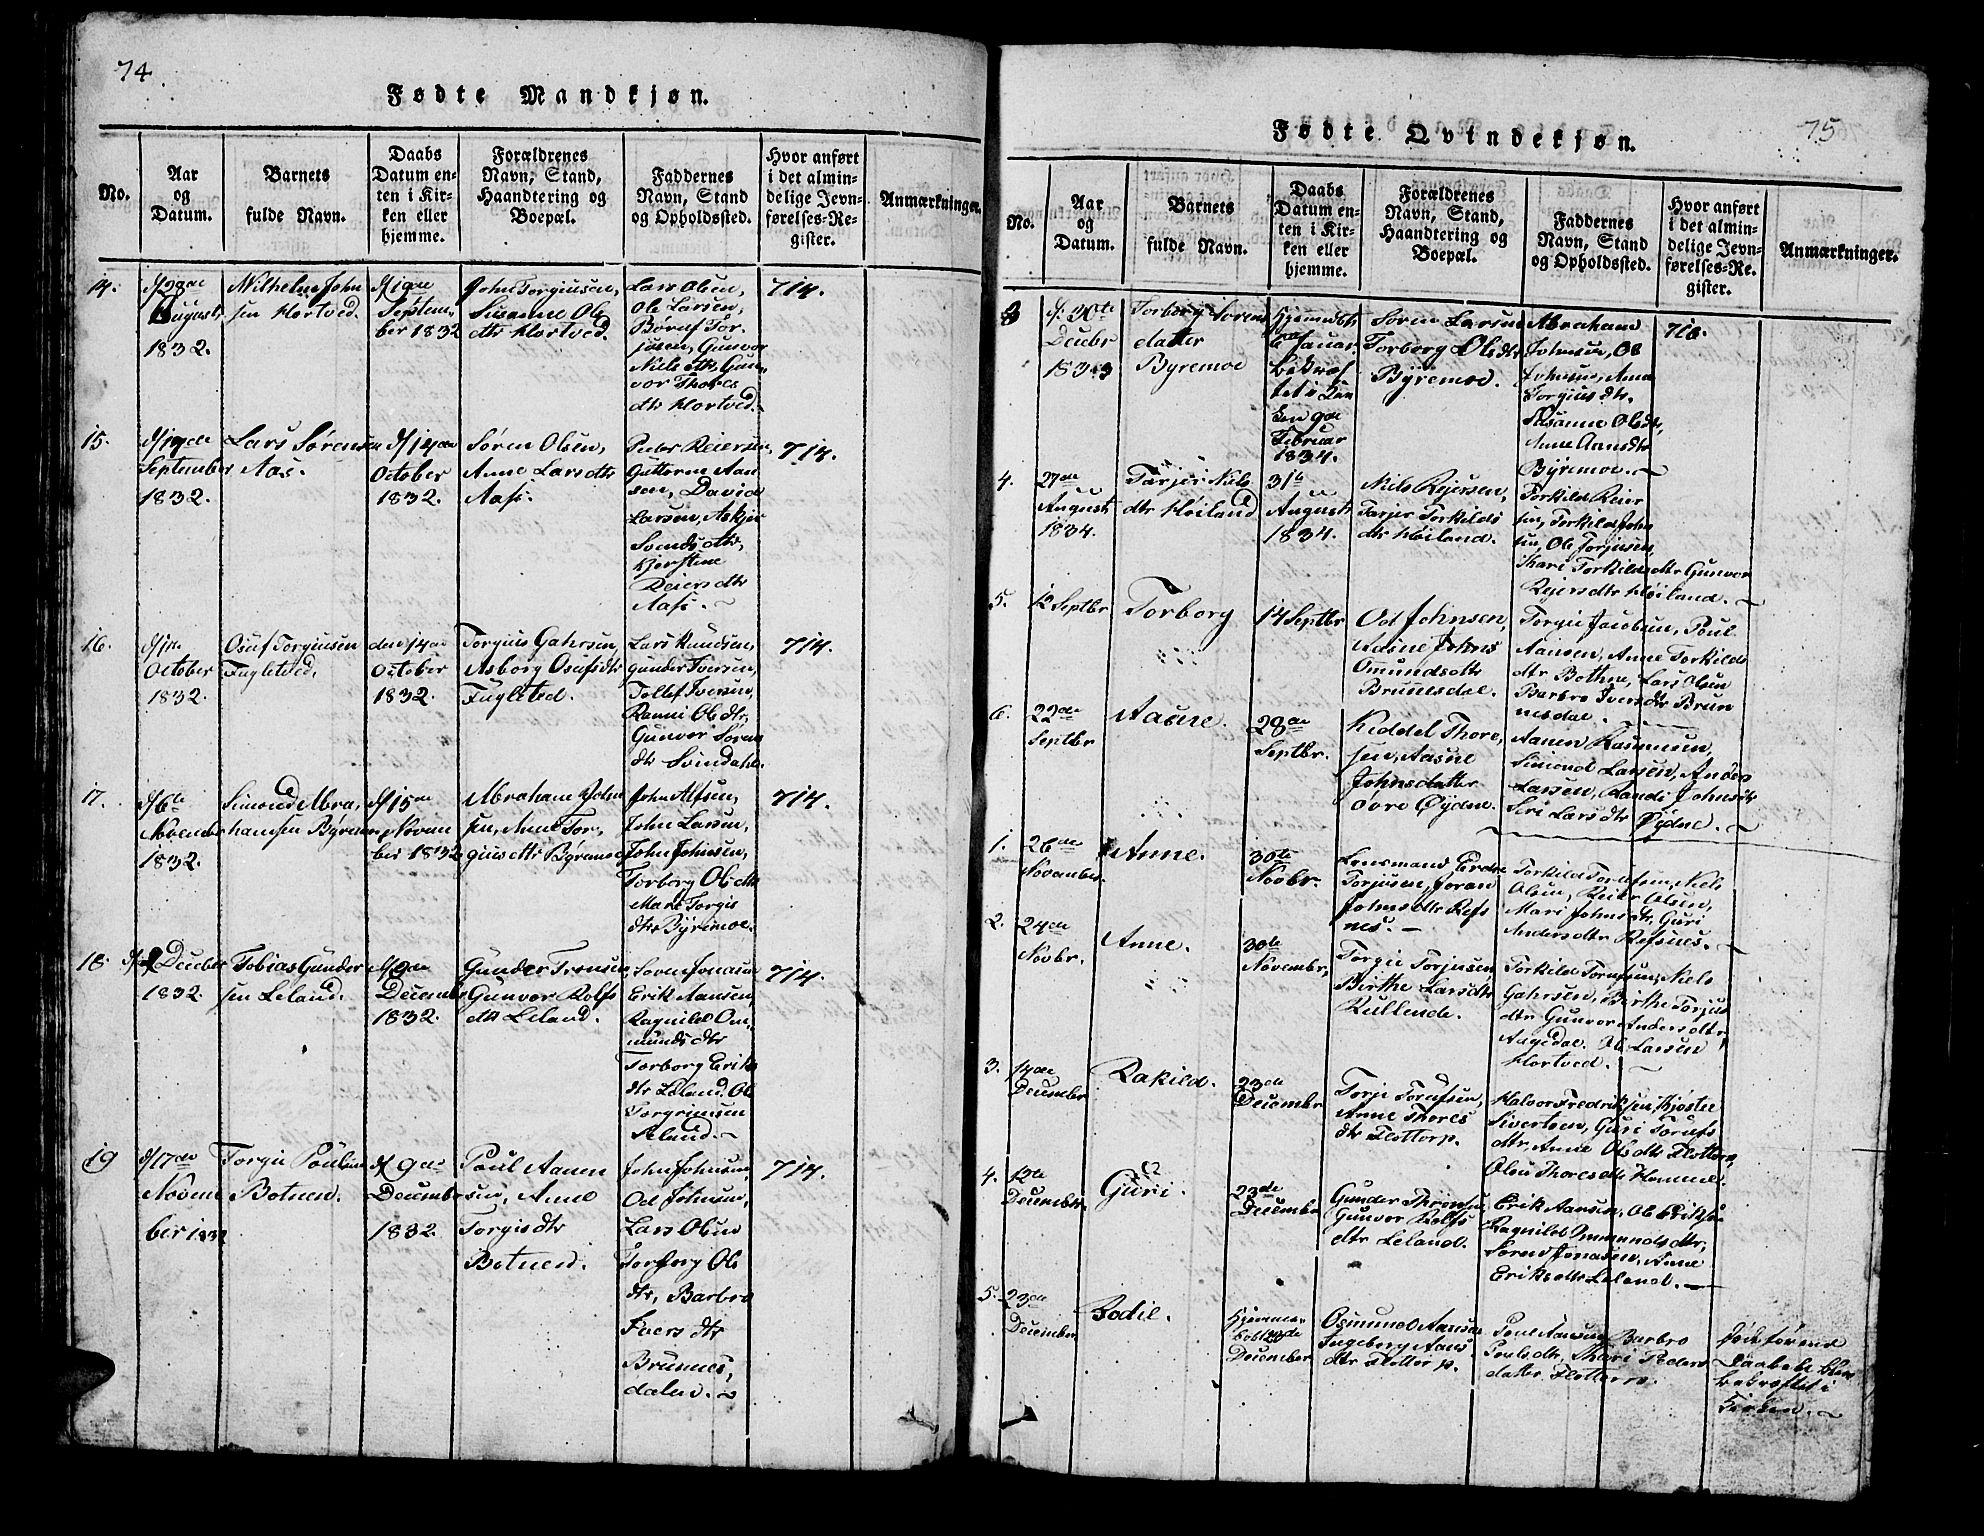 74
Fødte Mandkjøn.
No.
Aar
og
Datum.
Barnets
fulde Navn.
Daabs
Datum en-
ten i Kir-
ken eller
hjemme.
Forældrenes
Navn, Stand,
Haandtering og
Boepæl.
Faddernes
Navn, Stand
og Opholdssted.
Hvor anført
i det almin-
delige Jevn-
førelses-Re-
gister.
Anmærkninger.
14.
August
1832.
Wilhelm John
sen Hortved.
Septem
ber 1832
John Torgiusen,
Susanne Ols
dtr Hortved.
Lars Olsen,
Ole Larsen,
Gunvor
Niels dtr, Gun
vor Thores
dtr Hortved.
714.
15.
September
1832.
Lars Sørensen
Aas.
d/14de
October
1832.
Søren Olsen,
Anne Larsdtr
Aas.
Peder Reiersen,
Guttorm Aan
sen, David
Larsen, Askjer
Svendsdtr,
Kjerstine
Reiersdtr
Aas.
714.
16.
October
1832.
Osuf Torgiusen
Fuglstved.
den 14de
October
1832.
Torgius Gahrsen,
Asborg Osufsdtr
Fuglsted.
Lars Knudsen,
Gunder Iversen,
Tollef Iversen,
Ranni Olsdtr,
Gunvor Søren
dtr Svindahl.
714.
17.
d/6te
November
1832.
Simond Abra
hamsen Byremo
d/15de
Novem
ber 1832
Abraham John
sen, Anne Tor
giusdtr Byremo
John Alfsen,
John Larsen,
John Johnsen,
Torborg Olsdtr
Mari Torgis
dtr Byremoe.
714.
18.
December
1832.
Tobias Gunder
sen Leland.
d/9de
December
1832.
Gunder Trønsen
Gunvor Rolfs
dtr Leland.
Søren Jonasen
Erik Aansen
Ragnild Om
mundsdtr
Torborg Eriks
dtr Leland. Ole
Torgrimsen
Leland.
714.
19
d/17de
Novem
ber 1832
Torgie Poulsen
Botnen.
d/9de
December
1832.
Poul Aanen
sen, Anne
Torgisdtr
Botnen.
John Johnsen,
Od Johnsen,
Lars Olsen
Torborg Ols
dtr, Barbro
Iversdtr
Brunnes
dalen.
714.
75
Fødte Qvindekjøn.
No.
Aar
og
Datum.
Barnets
fulde Navn.
Daabs
Datum en-
ten i Kir-
ken eller
hjemme.
Forældrenes
Navn, Stand,
Haandtering og
Boepæl.
Faddernes
Navn, Stand
og Opholdssted.
Hvor anført
i det almin-
delige Jevn-
førelses-Re-
gister.
Anmærkninger.
d. 30te
Decbr
1833
Torborg Sørens
datter
Byremoe
Hjemmedøbt
6te Januar.
bekræf
tet i Kir
ken 9de
Februar
1834.
Søren Larsen
Torborg Olsdtr
Byremoe.
Abraham
Johnsen, Ole
Johnsen, Anne
Torgiusdtr.
Susanne Olsdtr,
Anne Aansdtr
Byremoe.
716.
4.
27de
August
1834.
Tarjer Niels
dtr Høiland
31te
August
1834.
Niels Reiersen,
Tarjer Torkilds
dtr Høiland.
Torkild Reier
sen, Torkild John
sen, Ole Torjusen,
Kari Torkildsdtr Gunvor
Reiersdtr Høiland.
5.
12 Septbr
Torborg
14 Septbr
Od Johnsen,
Aasne Johns
Omundsdtr
Brunnesdal.
Torgie Jacobsen, Poul
Aansen, Anne Torkilds
dtr Bothne, Lars Olsen
Barbro Iversdtr Brun
nesdal.
6.
22de
Septbr
Aasne.
28de
Septbr.
Kiddel Thore
sen, Aasne
Johnsdatter
Øvre Øydne.
Aanen Rasmusen,
Simond Larsen, Anders
Larsen, Randi Johnsdtr
Siri Larsdtr Øydne.
1.
26de
November.
Anne.
30te
Novbr.
Lensmand Peder
Torjusen, Joran
Johnsdtr Refs
nes.
Torkild Torufsen, Niels
Olsen, Reier Olsen,
Mari Johnsdtr, Guri
Andersdtr Refsnes.
2.
24de
Novbr.
Anne.
30te
Novembr,
Torgie Torjusen
Birthe Larsdtr
Kullende.
Torkild Torufsen, Niels
Gahrsen, Birthe Torjus
dtr Gunvor Andersdtr
Augedal. Ole Larsen
Hortved.
3.
14de
December
Rakild.
23de
Decembr
Torje Torufsen,
Anne Thores
dtr Flottorp.
Halvor Fredriksen, Kjøstel
Sivertsen, Guri Torufs
dtr, Anne Olsdtr Flottorp,
Olene Thoresdtr Homme.
4.
12te
December.
Guri.
23de
December
Gunder Thrønsen,
Gunvor Rolfs
dtr Leland.
Erik Aansen, Ole Eriksen
Ragnild Ommundsdtr,
Søren Jonasen, Anne
Eriksdtr Leland.
5.
23de
December
Bodil.
Hjemme
December
Osmund Aansen
Ingeborg Aans
dtr Flottorp.
Poul Aansen, Barbro
Poulsdtr, Kari Peders
datter Flottorp.
bekræftet i
Kirken.